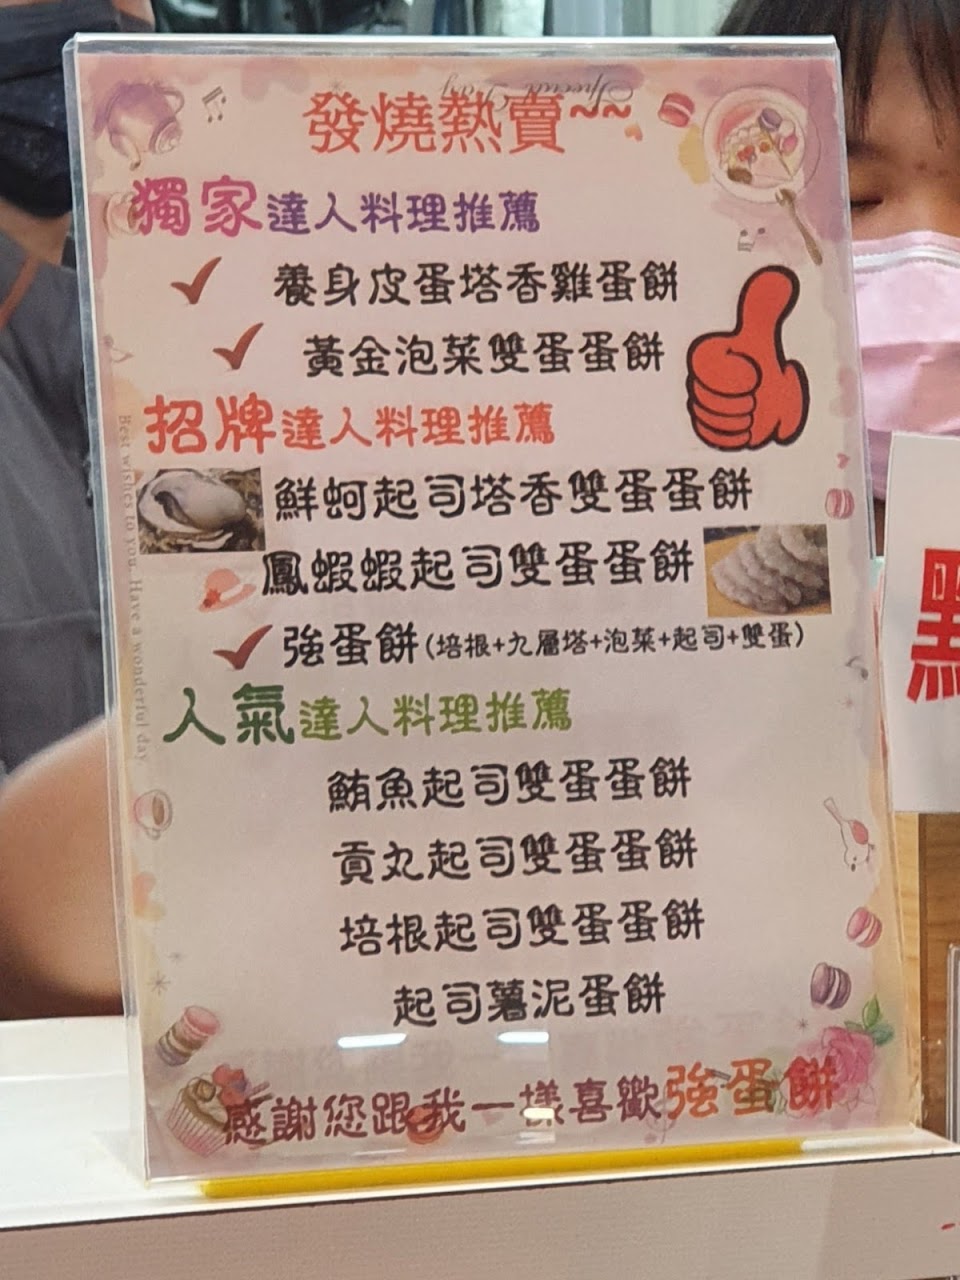 發燒熱賣~~
獨家達人料理推薦
養身皮蛋塔香雞蛋餅
黃金泡菜雙蛋蛋餅
招牌達人料理推薦
鮮蚵起司塔香雙蛋蛋餅
鳳蝦蝦起司雙蛋蛋餅
強蛋餅(培根+九層塔+泡菜+起司+雙蛋)
人氣達人料理推薦
鮪魚起司雙蛋蛋餅
貢丸起司雙蛋蛋餅
培根起司雙蛋蛋餅
起司薯泥蛋餅
感謝您跟我一樣喜歡強蛋餅
Best wishes to you. Have a wonderful day